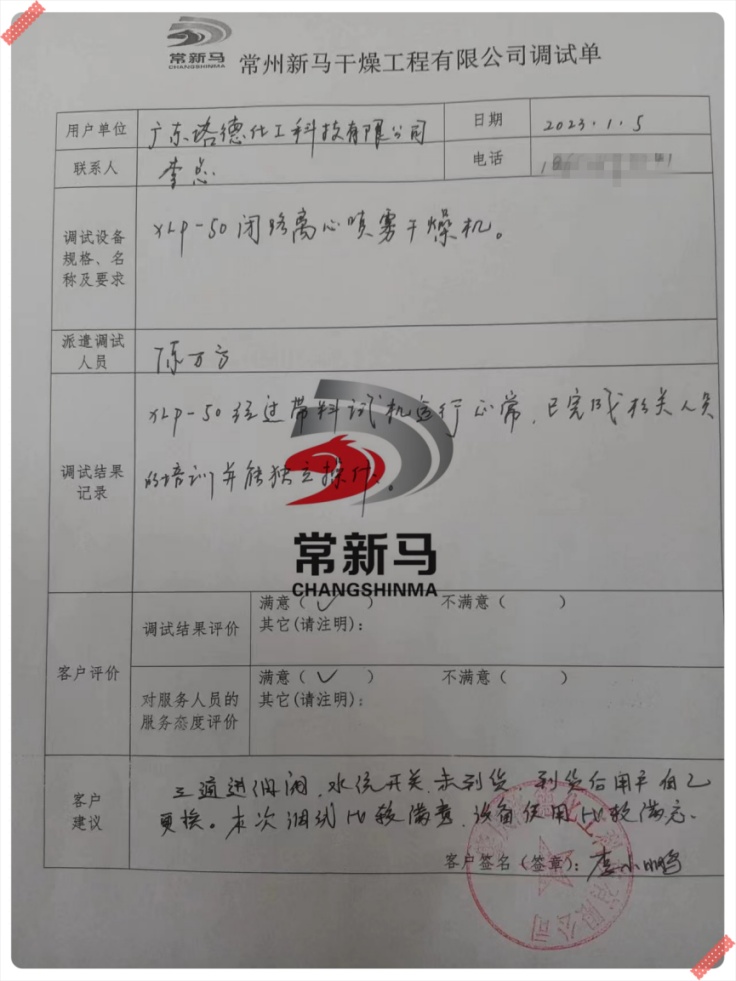 常新马
CHANGSHINMA
常州新马干燥工程有限公司调试单
用户单位
广东塔德化工科技有限公司
日期
2023.1.5
联系人
李总
电话
调试设备
规格、名
称及要求
XLP-50闭路离心喷雾干燥机。
派遣调试
人员
陈万方
调试结果
记录
XLP-50经过带料试机运行正常,已完成相关人员
的培训并能独立操作。
常新马
CHANGSHINMA
客户评价
调试结果评价
满意(✓) 不满意( )
其它(请注明):
对服务人员的
服务态度评价
满意(✓) 不满意( )
其它(请注明):
客户
建议
三通进 阀、水流开关未到货,到货后用户自己
更换。本次调试比较满意,设备使用比较满意.
客户签名(签章):李小鹏